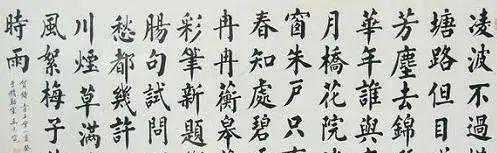 凌波不過
塘路但目
芳塵去錦
華年誰與
月橋花院
窗朱戶只
春知處碧
冉冉蘅皋
彩筆新題
腸句試問
愁都幾許
川煙草滿
風絮梅子
時雨